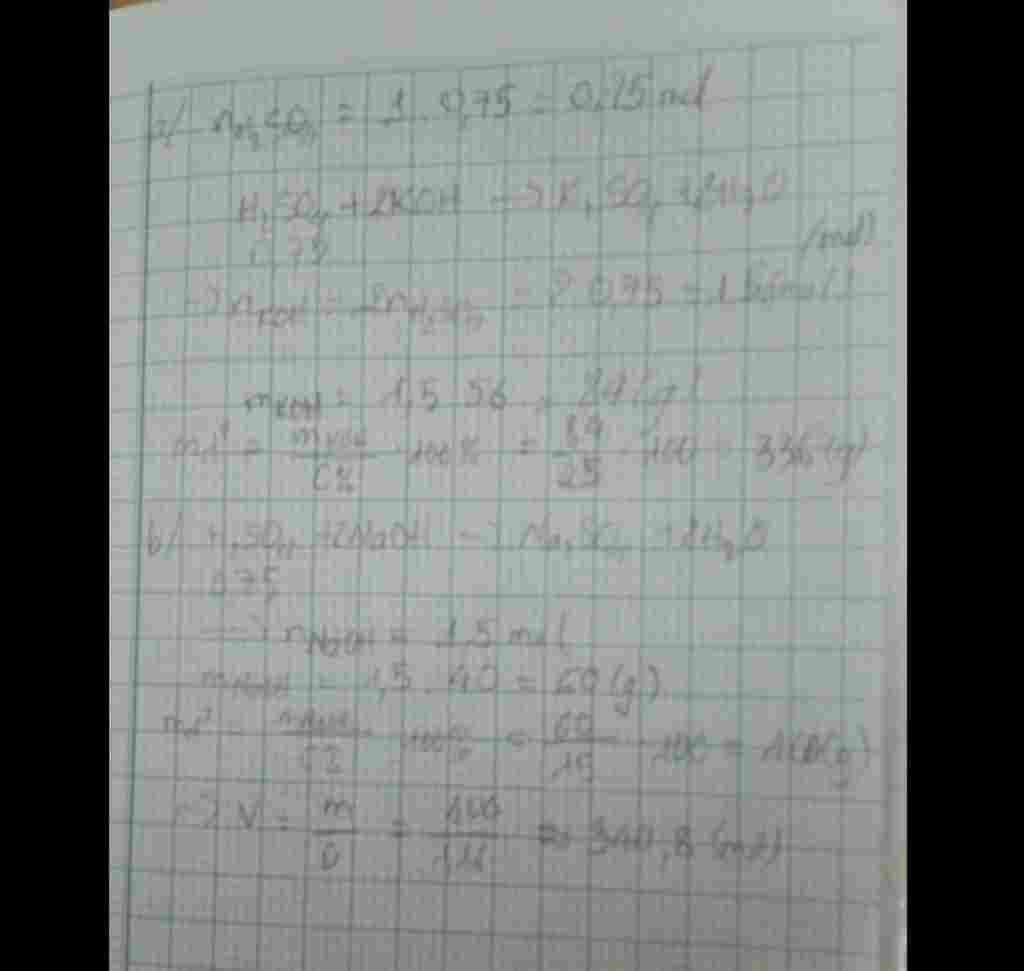 a/ nH₂SO₄ = 1 . 0,75 = 0,75 mol
H₂SO₄ + 2KOH -> K₂SO₄ + 2H₂O
0,75 (mol)
-> nKOH = 2nH₂SO₄ = 2 0,75 = 1,5 (mol)
mKOH = 1,5 56 = 84 (g)
mKOH / C% . 100% = 84/25 . 100 = 336 (g)
b/ H₂SO₄ + 2NaOH -> Na₂SO₄ + 2H₂O
0,75
-> nNaOH = 1,5 mol
mNaOH = 1,5 . 40 = 60 (g)
mNaOH / C% . 100% = 60/15 . 100 = (g)
-> V = m/D = = ,8 (ml)